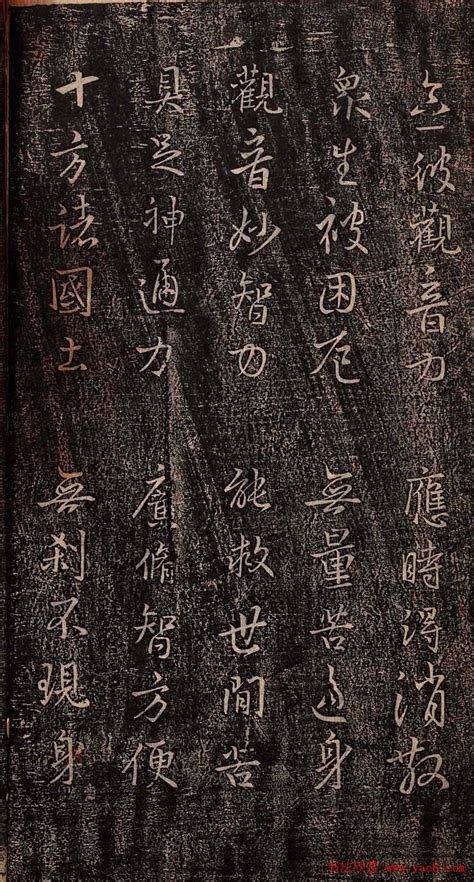 念彼觀音力 應時得消散
衆生被困厄 無量苦逼身
觀音妙智力 能救世間苦
具足神通力 廣脩智方便
十方諸國土 無刹不現身
www.yac8.com